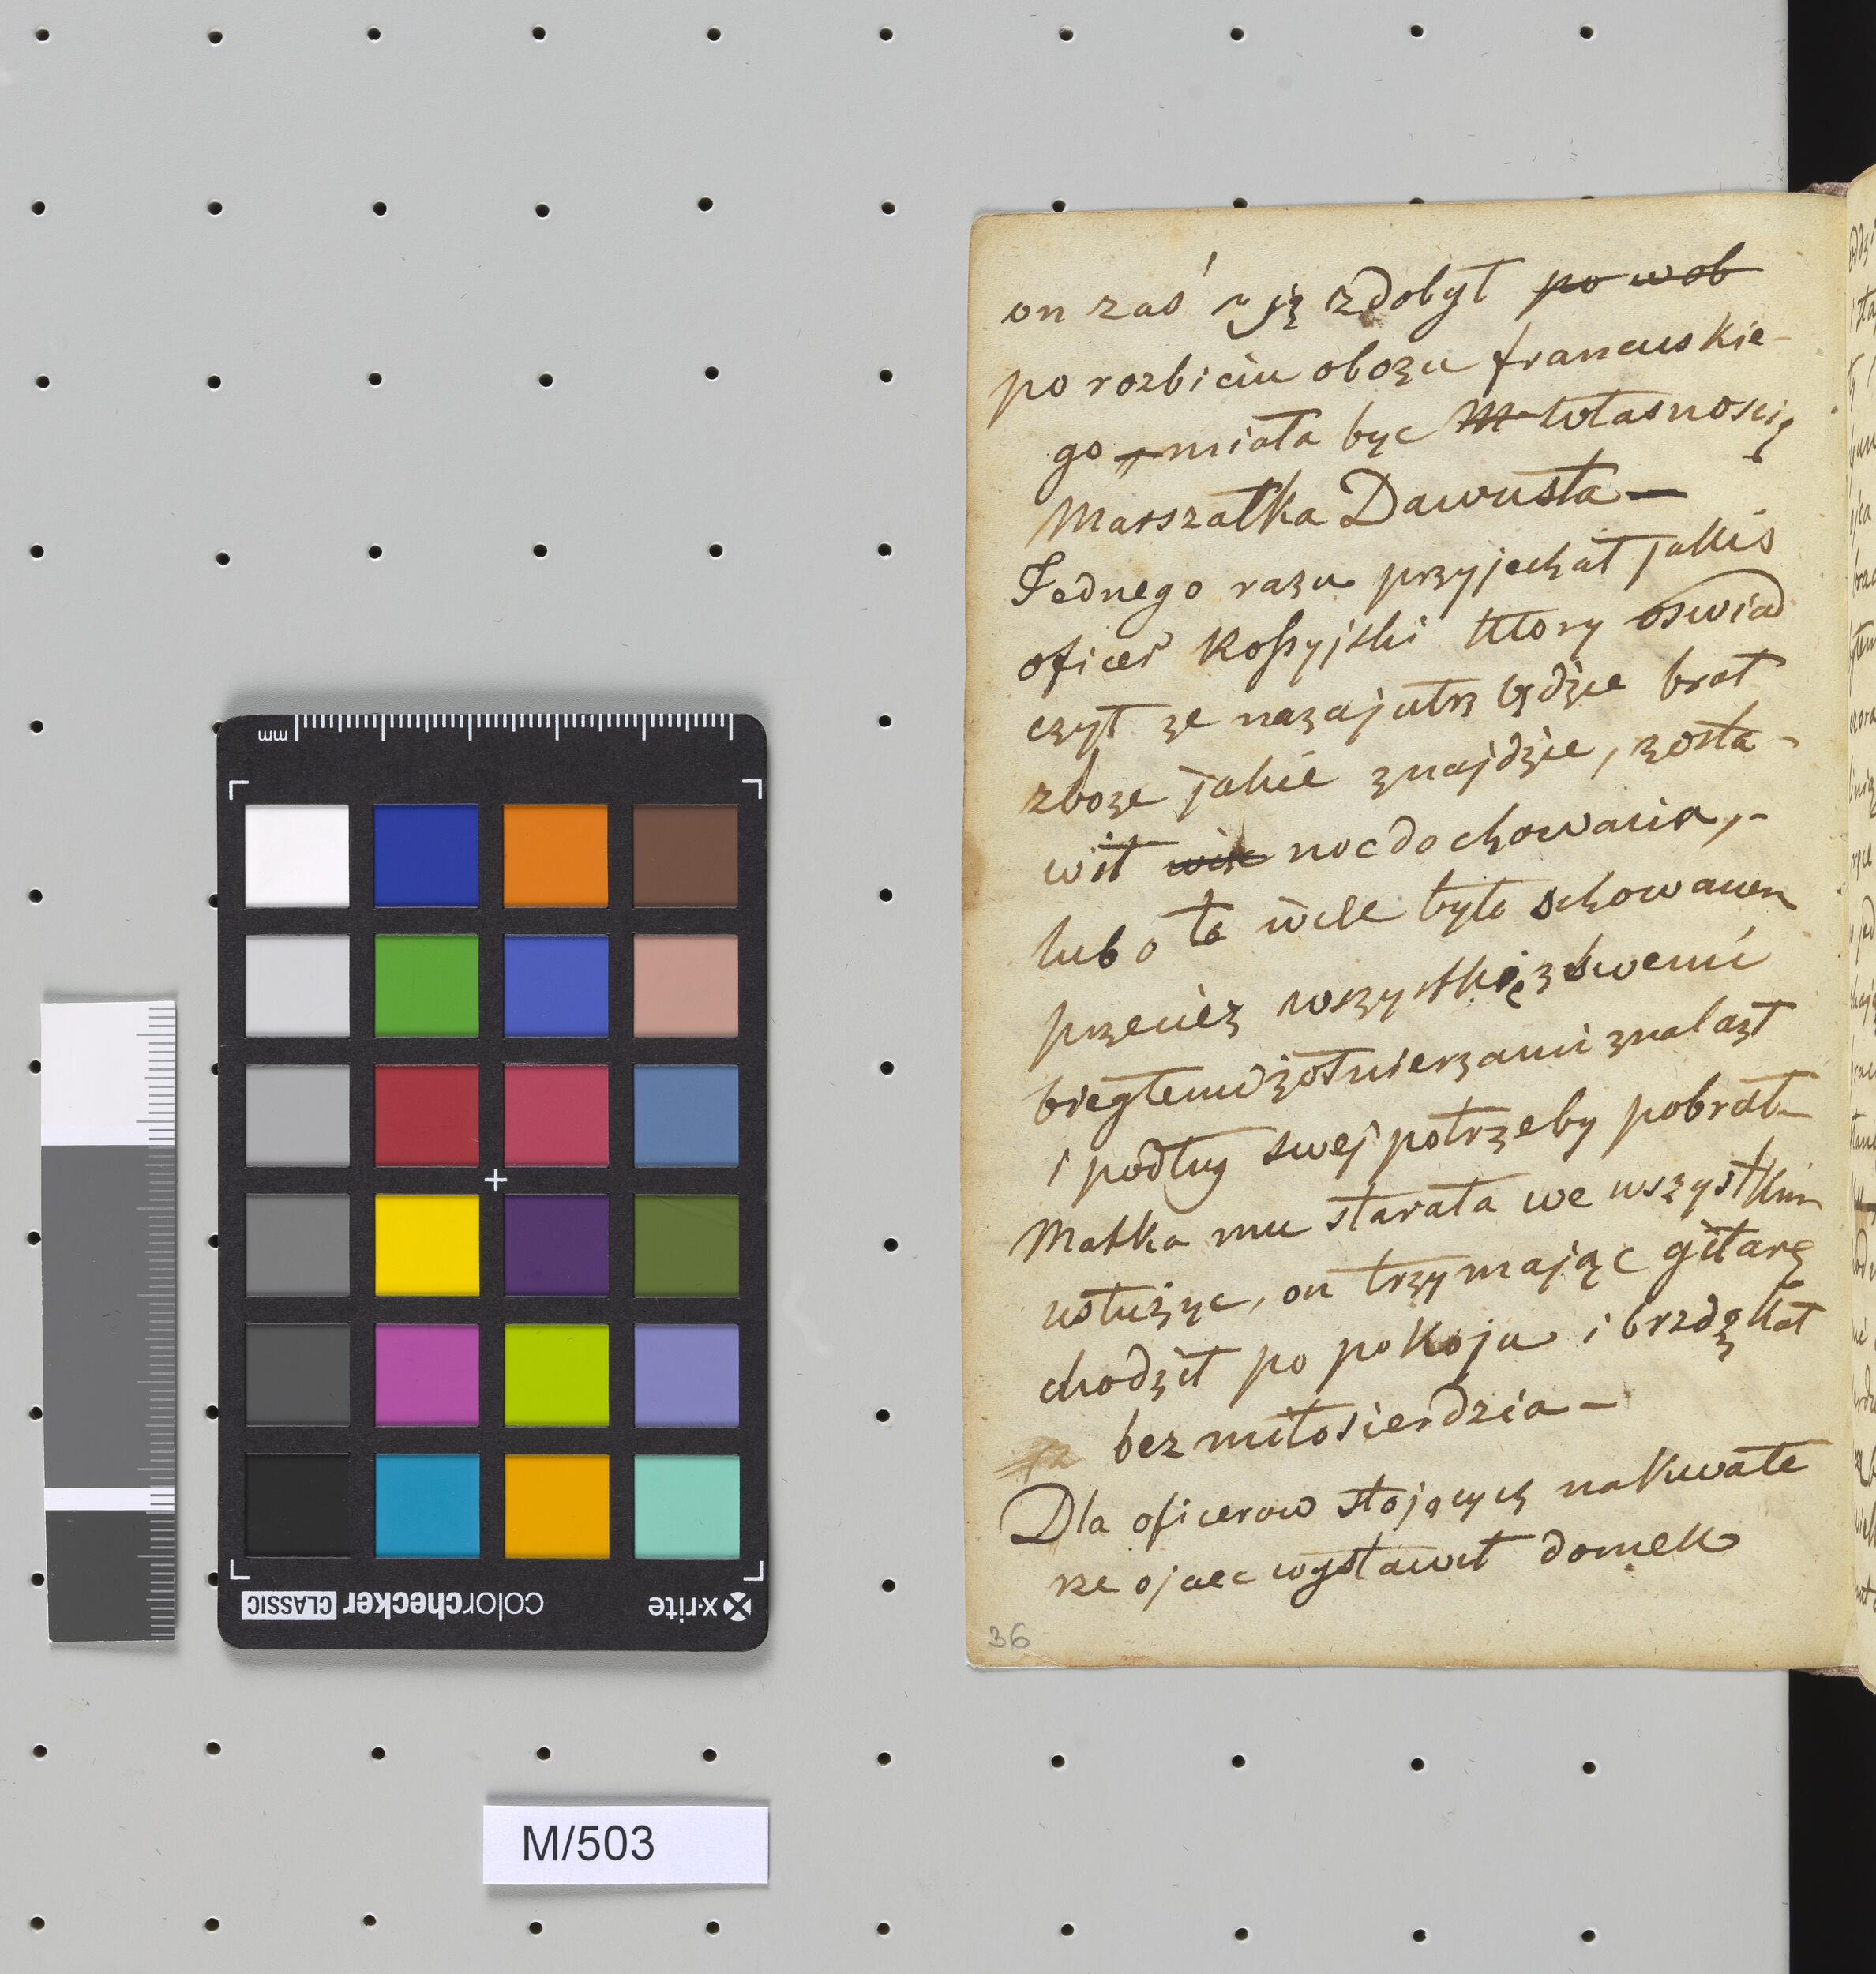 on zaś ją zdobył po wob
po rozbiciu obozu francuskie-
go miała byc M Własnoscią
Marszałka Dawusta —
Jednego razu przyjechał jakis
oficer Rossyjski ktory oswiad
czył ze nazajutrz będzie brał
zboze jakie znajdzie, zosta-
wił noc do chowania, -
lubo te wiele było schowanem
przeciez wszystkie z swemi
biegłemi żołnierzami znalazł
i podług swej potrzeby pobrał -
Matka mu starała we wszystkim
usłużyc, on trzymając gitarę
chodził po pokoju i brzdękał
bez miłosierdzia -
Dla oficerow stojących na kwate
rze ojciec wystawił domek
36
mm
x-rite
colorchecker CLASSIC
M/503